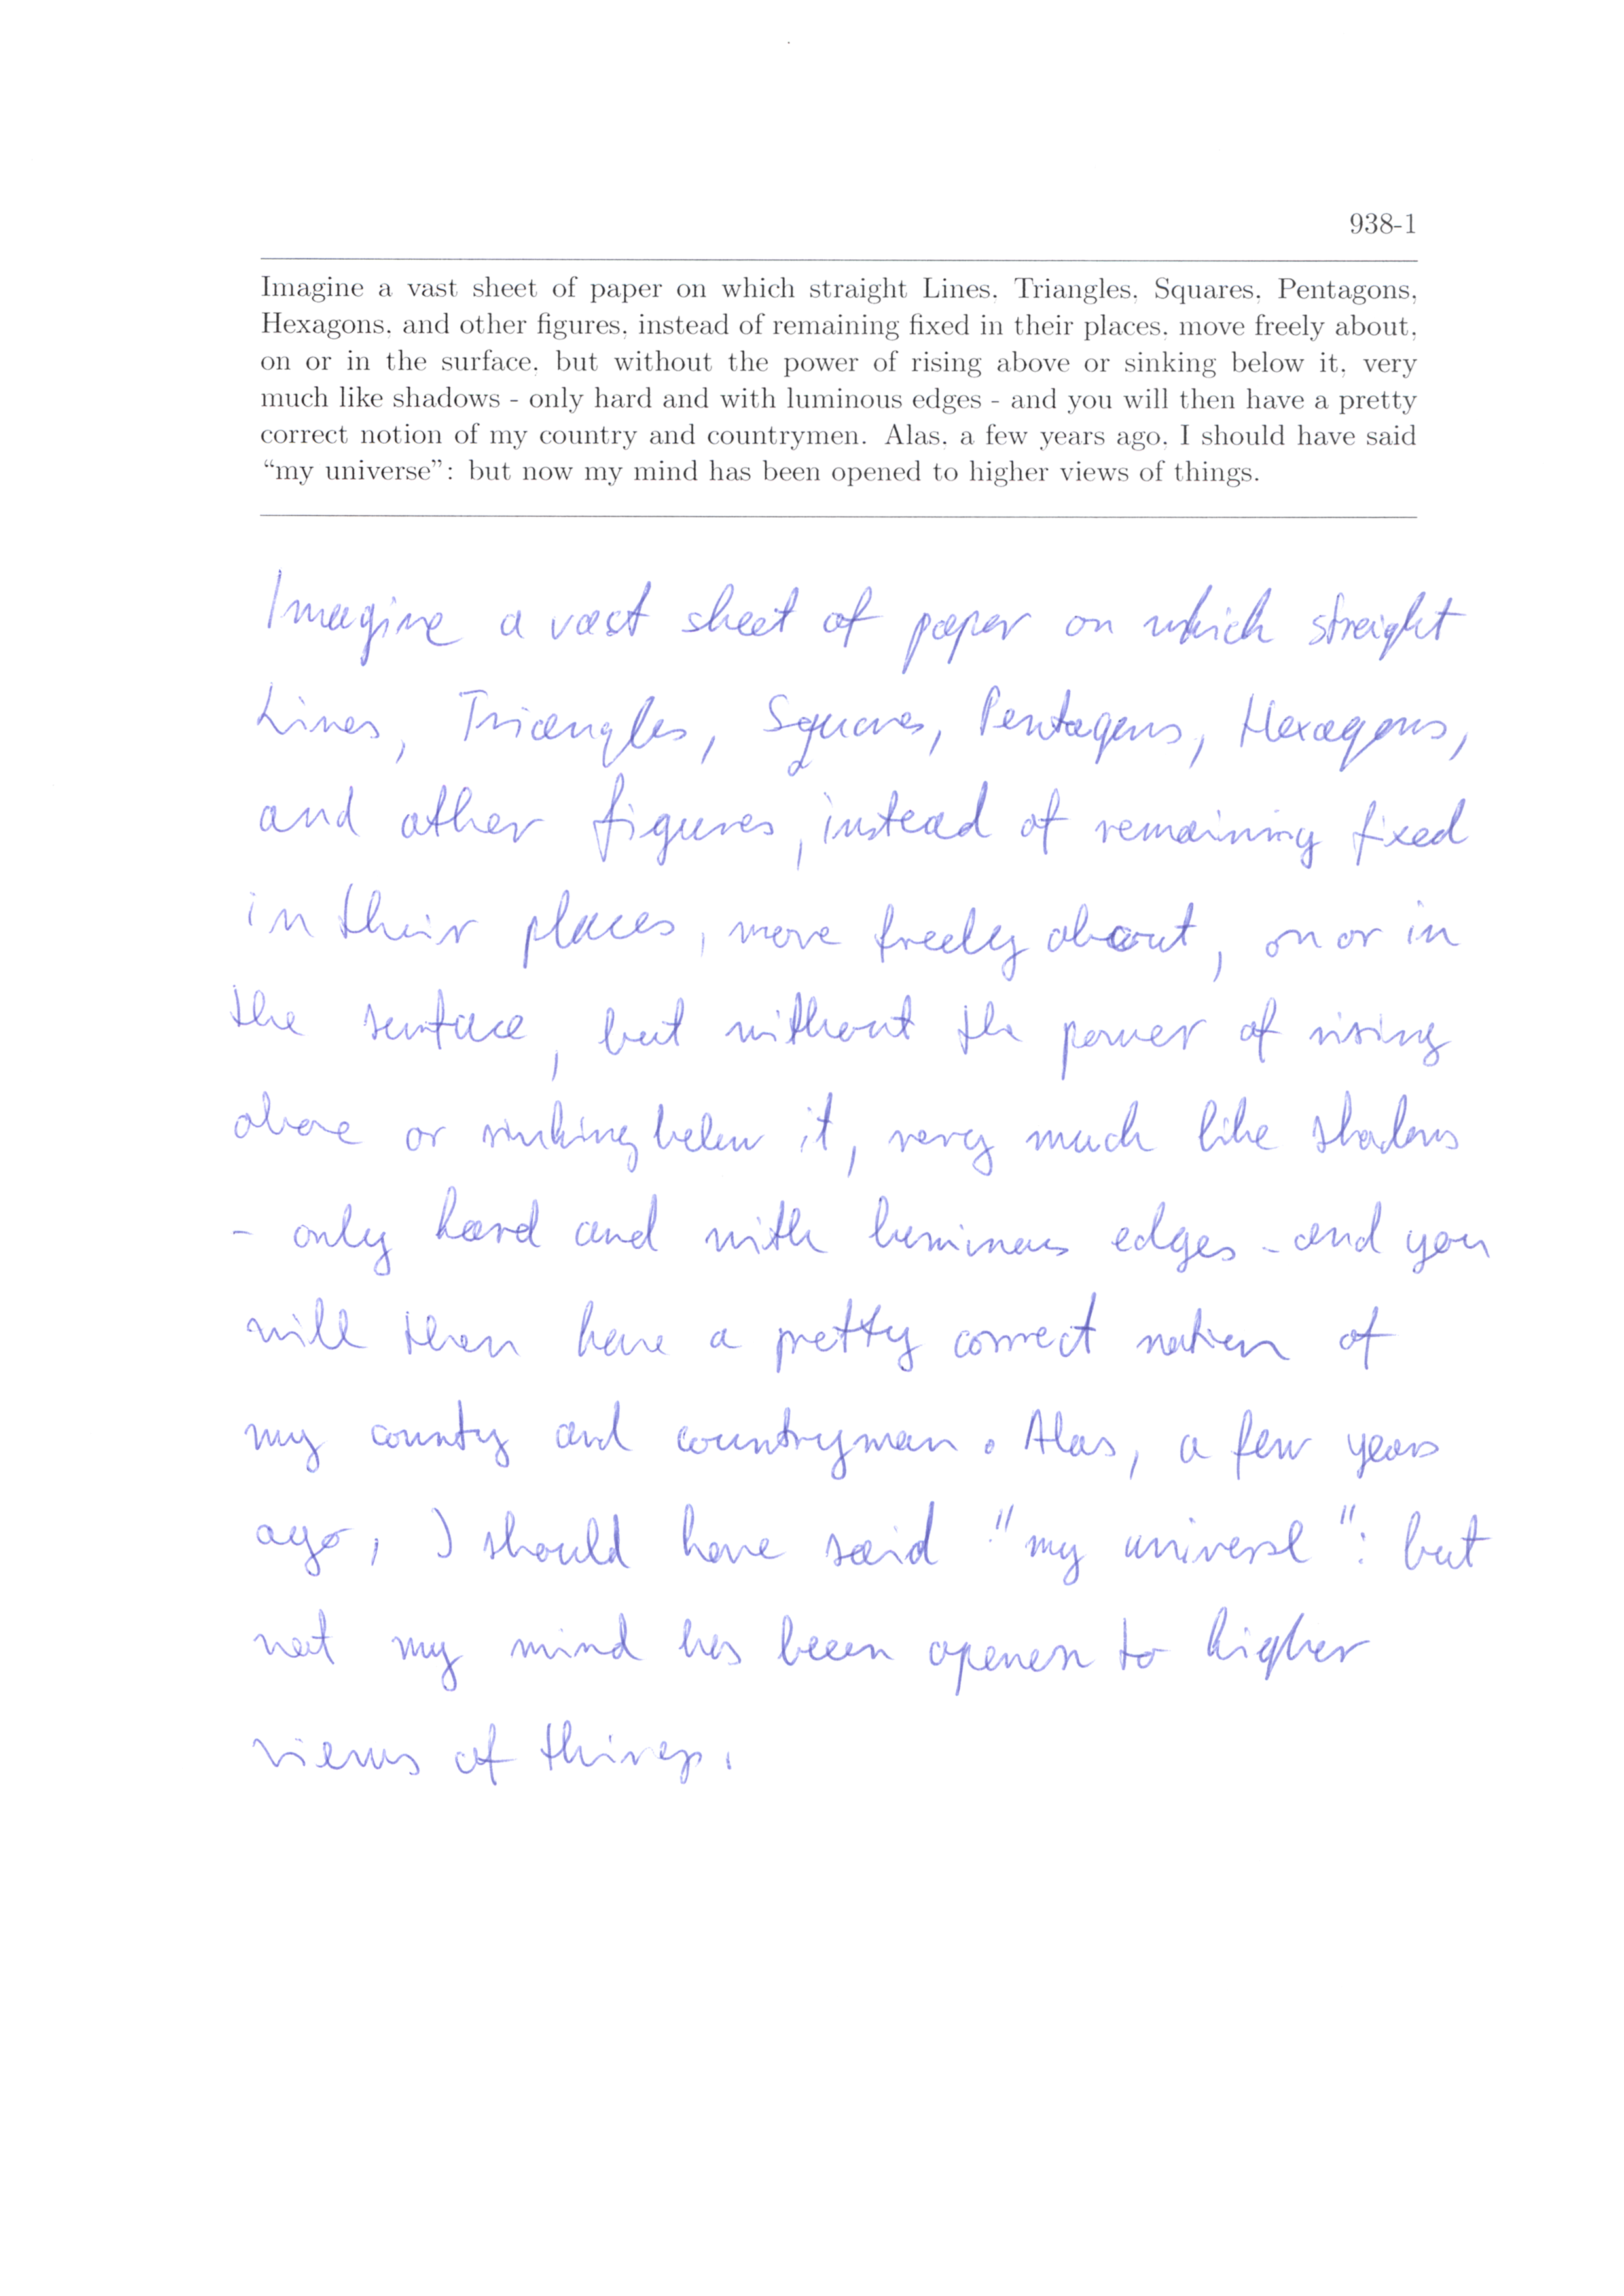 938-1
Imagine a vast sheet of paper on which straight Lines, Triangles, Squares, Pentagons,
Hexagons, and other figures, instead of remaining fixed in their places, move freely about,
on or in the surface, but without the power of rising above or sinking below it, very
much like shadows - only hard and with luminous edges - and you will then have a pretty
correct notion of my country and countrymen. Alas, a few years ago, I should have said
“my universe”: but now my mind has been opened to higher views of things.
Imagine a vast sheet of paper on which straight
Lines, Triangles, Squares, Pentagons, Hexagons,
and other figures, instead of remaining fixed
in their places, move freely about, on or in
the surface, but without the power of rising
above or sinking below it, very much like shadows
- only hard and with luminous edges - and you
will then have a pretty correct notion of
my county and countryman. Alas, a few years
ago, I should have said "my universe": but
not my mind has been openen to higher
views of things.